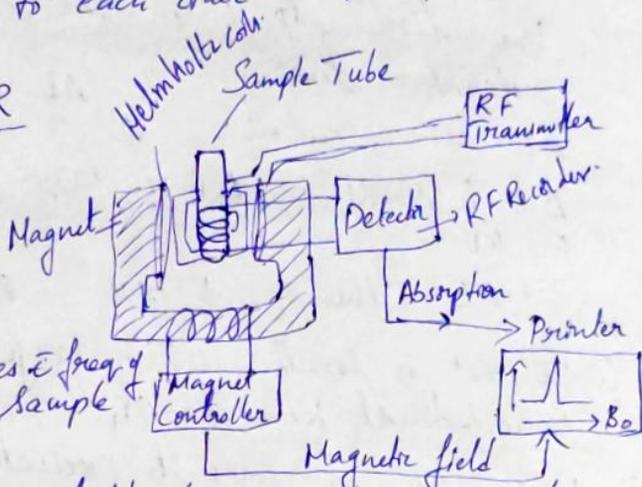 to each
R
Helmholtz coil.
Sample Tube
RF
Transmitter
Magnet
Detector
RF Recorder.
Absorption
Printer
es c̄ freq of
Sample
Magnet
Controller
B₀
Magnetic field